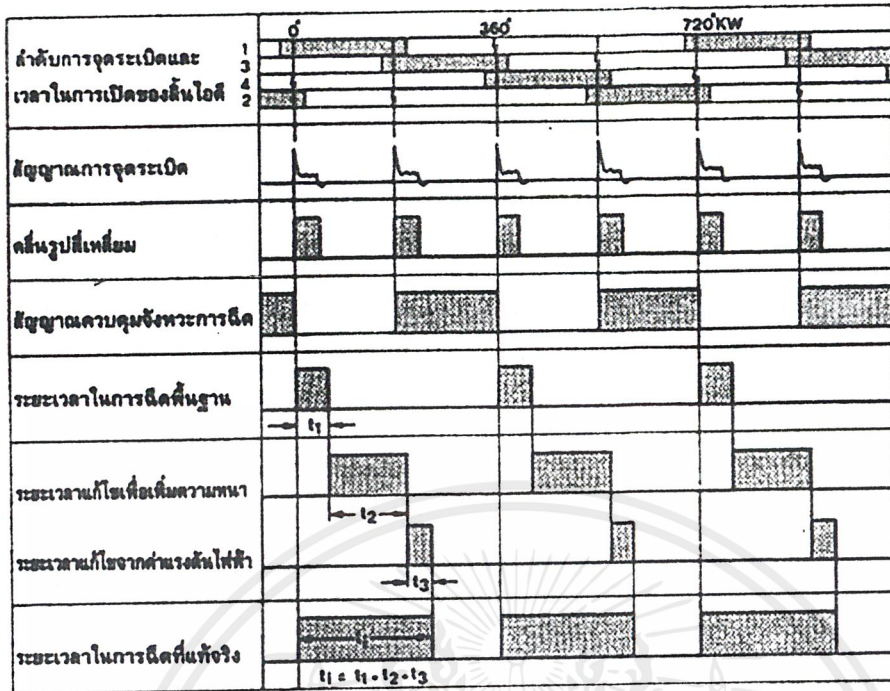 0° 360° 720°KW
ลำดับการจุดระเบิดและ
เวลาในการเปิดของลิ้นไอดี
1
3
4
2
สัญญาณการจุดระเบิด
คลื่นรูปสี่เหลี่ยม
สัญญาณควบคุมจังหวะการฉีด
ระยะเวลาในการฉีดพื้นฐาน
t₁
ระยะเวลาแก้ไขเพื่อเพิ่มความหนา
t₂
ระยะเวลาแก้ไขจากค่าแรงดันไฟฟ้า
t₃
ระยะเวลาในการฉีดที่แท้จริง
tᵢ
tᵢ = t₁ + t₂ + t₃